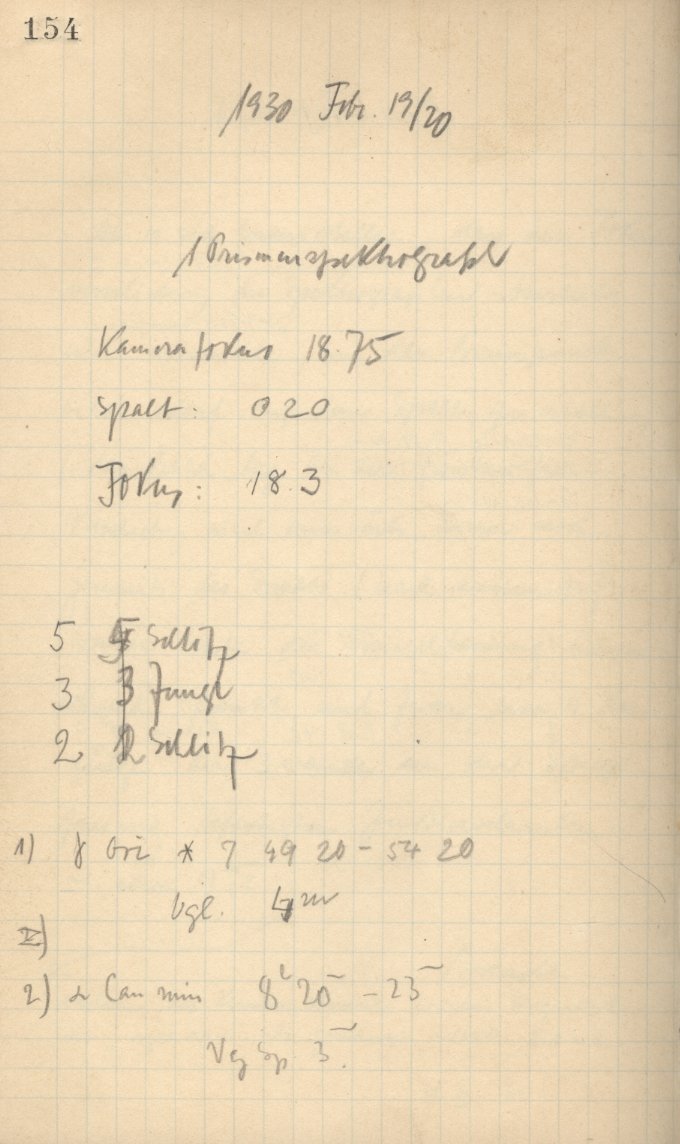 154
1930 Febr. 19/20
1 Prismenspektrograph
Kamerafokus 18.75
Spalt: 0 20
Fokus: 18.3
5 Schlitz
3 3 Jungl
2 Schlitz
1) γ Ori * 7 49 20 - 54 20
Vgl. 4 m
2) α Can min 8h 20m - 23m
Vg Sp 3m.